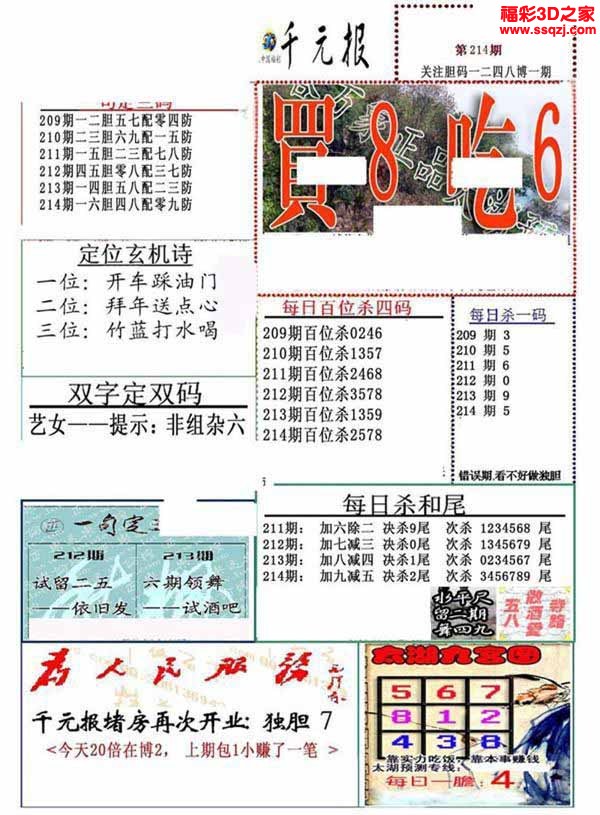 福彩3D之家
www.ssqzj.com
中国福彩
千元报
第214期
关注胆码一二四八博一期
209期一二胆五七配零四防
210期二三胆六九配一五防
211期一五胆二三配七八防
212期四五胆零八配三七防
213期一四胆五八配二三防
214期一六胆四八配零九防
買8吃6
定位玄机诗
一位：开车踩油门
二位：拜年送点心
三位：竹蓝打水喝
双字定双码
艺女——提示：非组杂六
每日百位杀四码
209期百位杀0246
210期百位杀1357
211期百位杀2468
212期百位杀3578
213期百位杀1359
214期百位杀2578
每日杀一码
209 期 3
210 期 5
211 期 6
212 期 0
213 期 9
214 期 5
错误期,看不好做独胆
一句定三
212期
试留二五
——依旧发
213期
六期领舞
——试酒吧
每日杀和尾
211期： 加六除二 决杀9尾 次杀 1234568 尾
212期： 加七减三 决杀0尾 次杀 1345679 尾
213期： 加八减四 决杀1尾 次杀 0234567 尾
214期： 加九减五 决杀2尾 次杀 3456789 尾
留二期
舞四九
五八
为人民服务
千元报堵房再次开业：独胆 7
<今天20倍在博2， 上期包1小赚了一笔 >
太湖九宫图
5 6 7
8 1 2
4 3 8
靠实力吃饭 靠本事赚钱
太湖预测专线:
每日一胆: 4